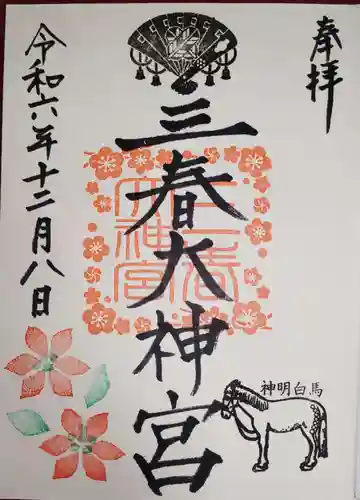 奉拝
三春大神宮
三春大神宮
令和六年十二月八日
神明白馬